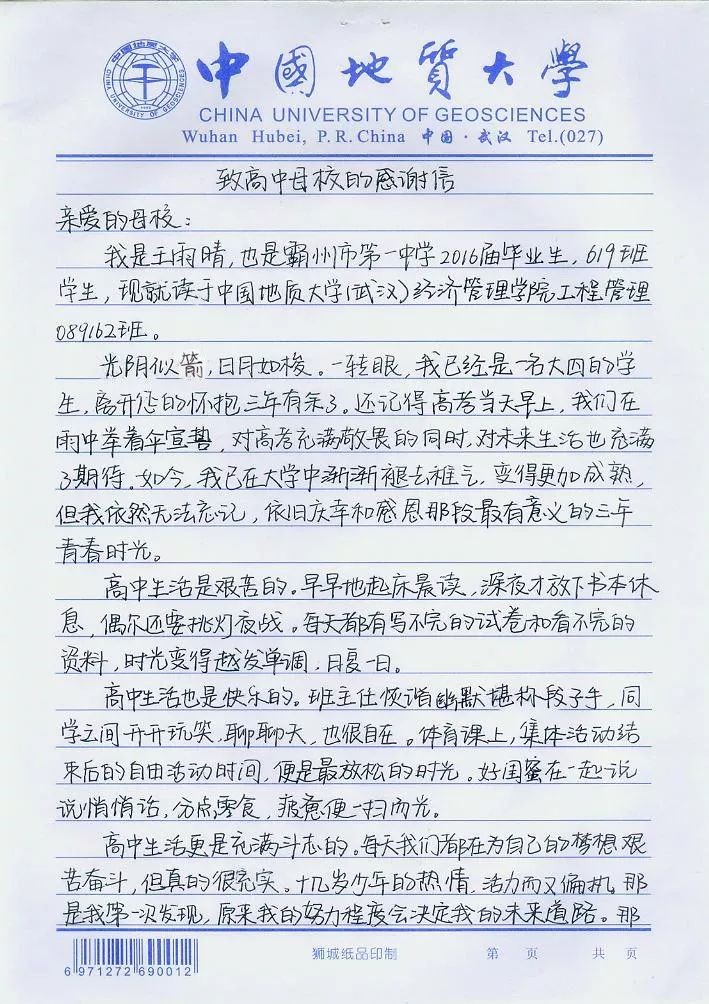 中國地質大學
CHINA UNIVERSITY OF GEOSCIENCES
Wuhan Hubei, P.R.China 中国·武汉 Tel.(027)
致高中母校的感谢信
亲爱的母校：
我是王雨晴，也是霸州市第一中学2016届毕业生，619班
学生，现就读于中国地质大学(武汉)经济管理学院工程管理
089162班。
光阴似箭，日月如梭。一转眼，我已经是一名大四的学
生，离开您的怀抱三年有余了。还记得高考当天早上，我们在
雨中举着伞宣誓，对高考充满敬畏的同时，对未来生活也充满
了期待。如今，我已在大学中渐渐褪去稚气，变得更加成熟，
但我依然无法忘记，依旧庆幸和感恩那段最有意义的三年
青春时光。
高中生活是艰苦的。早早地起床晨读，深夜才放下书本休
息，偶尔还要挑灯夜战。每天都有写不完的试卷和看不完的
资料，时光变得越发单调，日复一日。
高中生活也是快乐的。班主任诙谐幽默堪称段子手，同
学之间开开玩笑，聊聊天，也很自在。体育课上，集体活动结
束后的自由活动时间，便是最放松的时光。好闺蜜在一起说
说悄悄话，分点零食，疲惫便一扫而光。
高中生活更是充满斗志的。每天我们都在为自己的梦想艰
苦奋斗，但真的很充实。十几岁少年的热情，活力而又偏执。那
是我第一次发现，原来我的努力程度会决定我的未来道路。那
6 971272 690012
狮城纸品印制
第 页 共 页